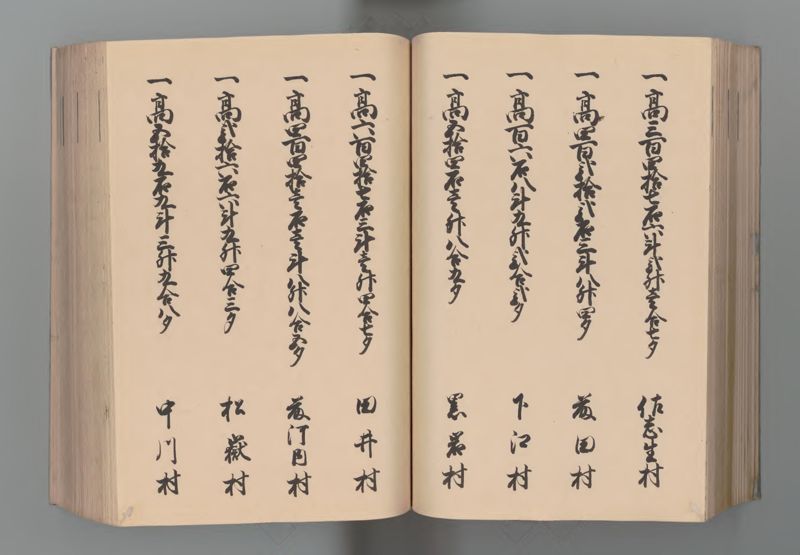 一高三百四拾七石六斗弐升壱合七夕 佐志生村
一高四百弐拾弐石二斗八升四夕 藤田村
一高百六石八斗九升弐合弐夕 下江村
一高五拾四石壱斗八合五夕 黒岩村
一高六百四拾七石三斗壱升四合七夕 田井村
一高四百四拾壱石壱斗八升八合五夕 藤河内村
一高弐拾六石六斗九升四合三夕 松嶽村
一高五拾九石九斗三升九合八夕 中川村